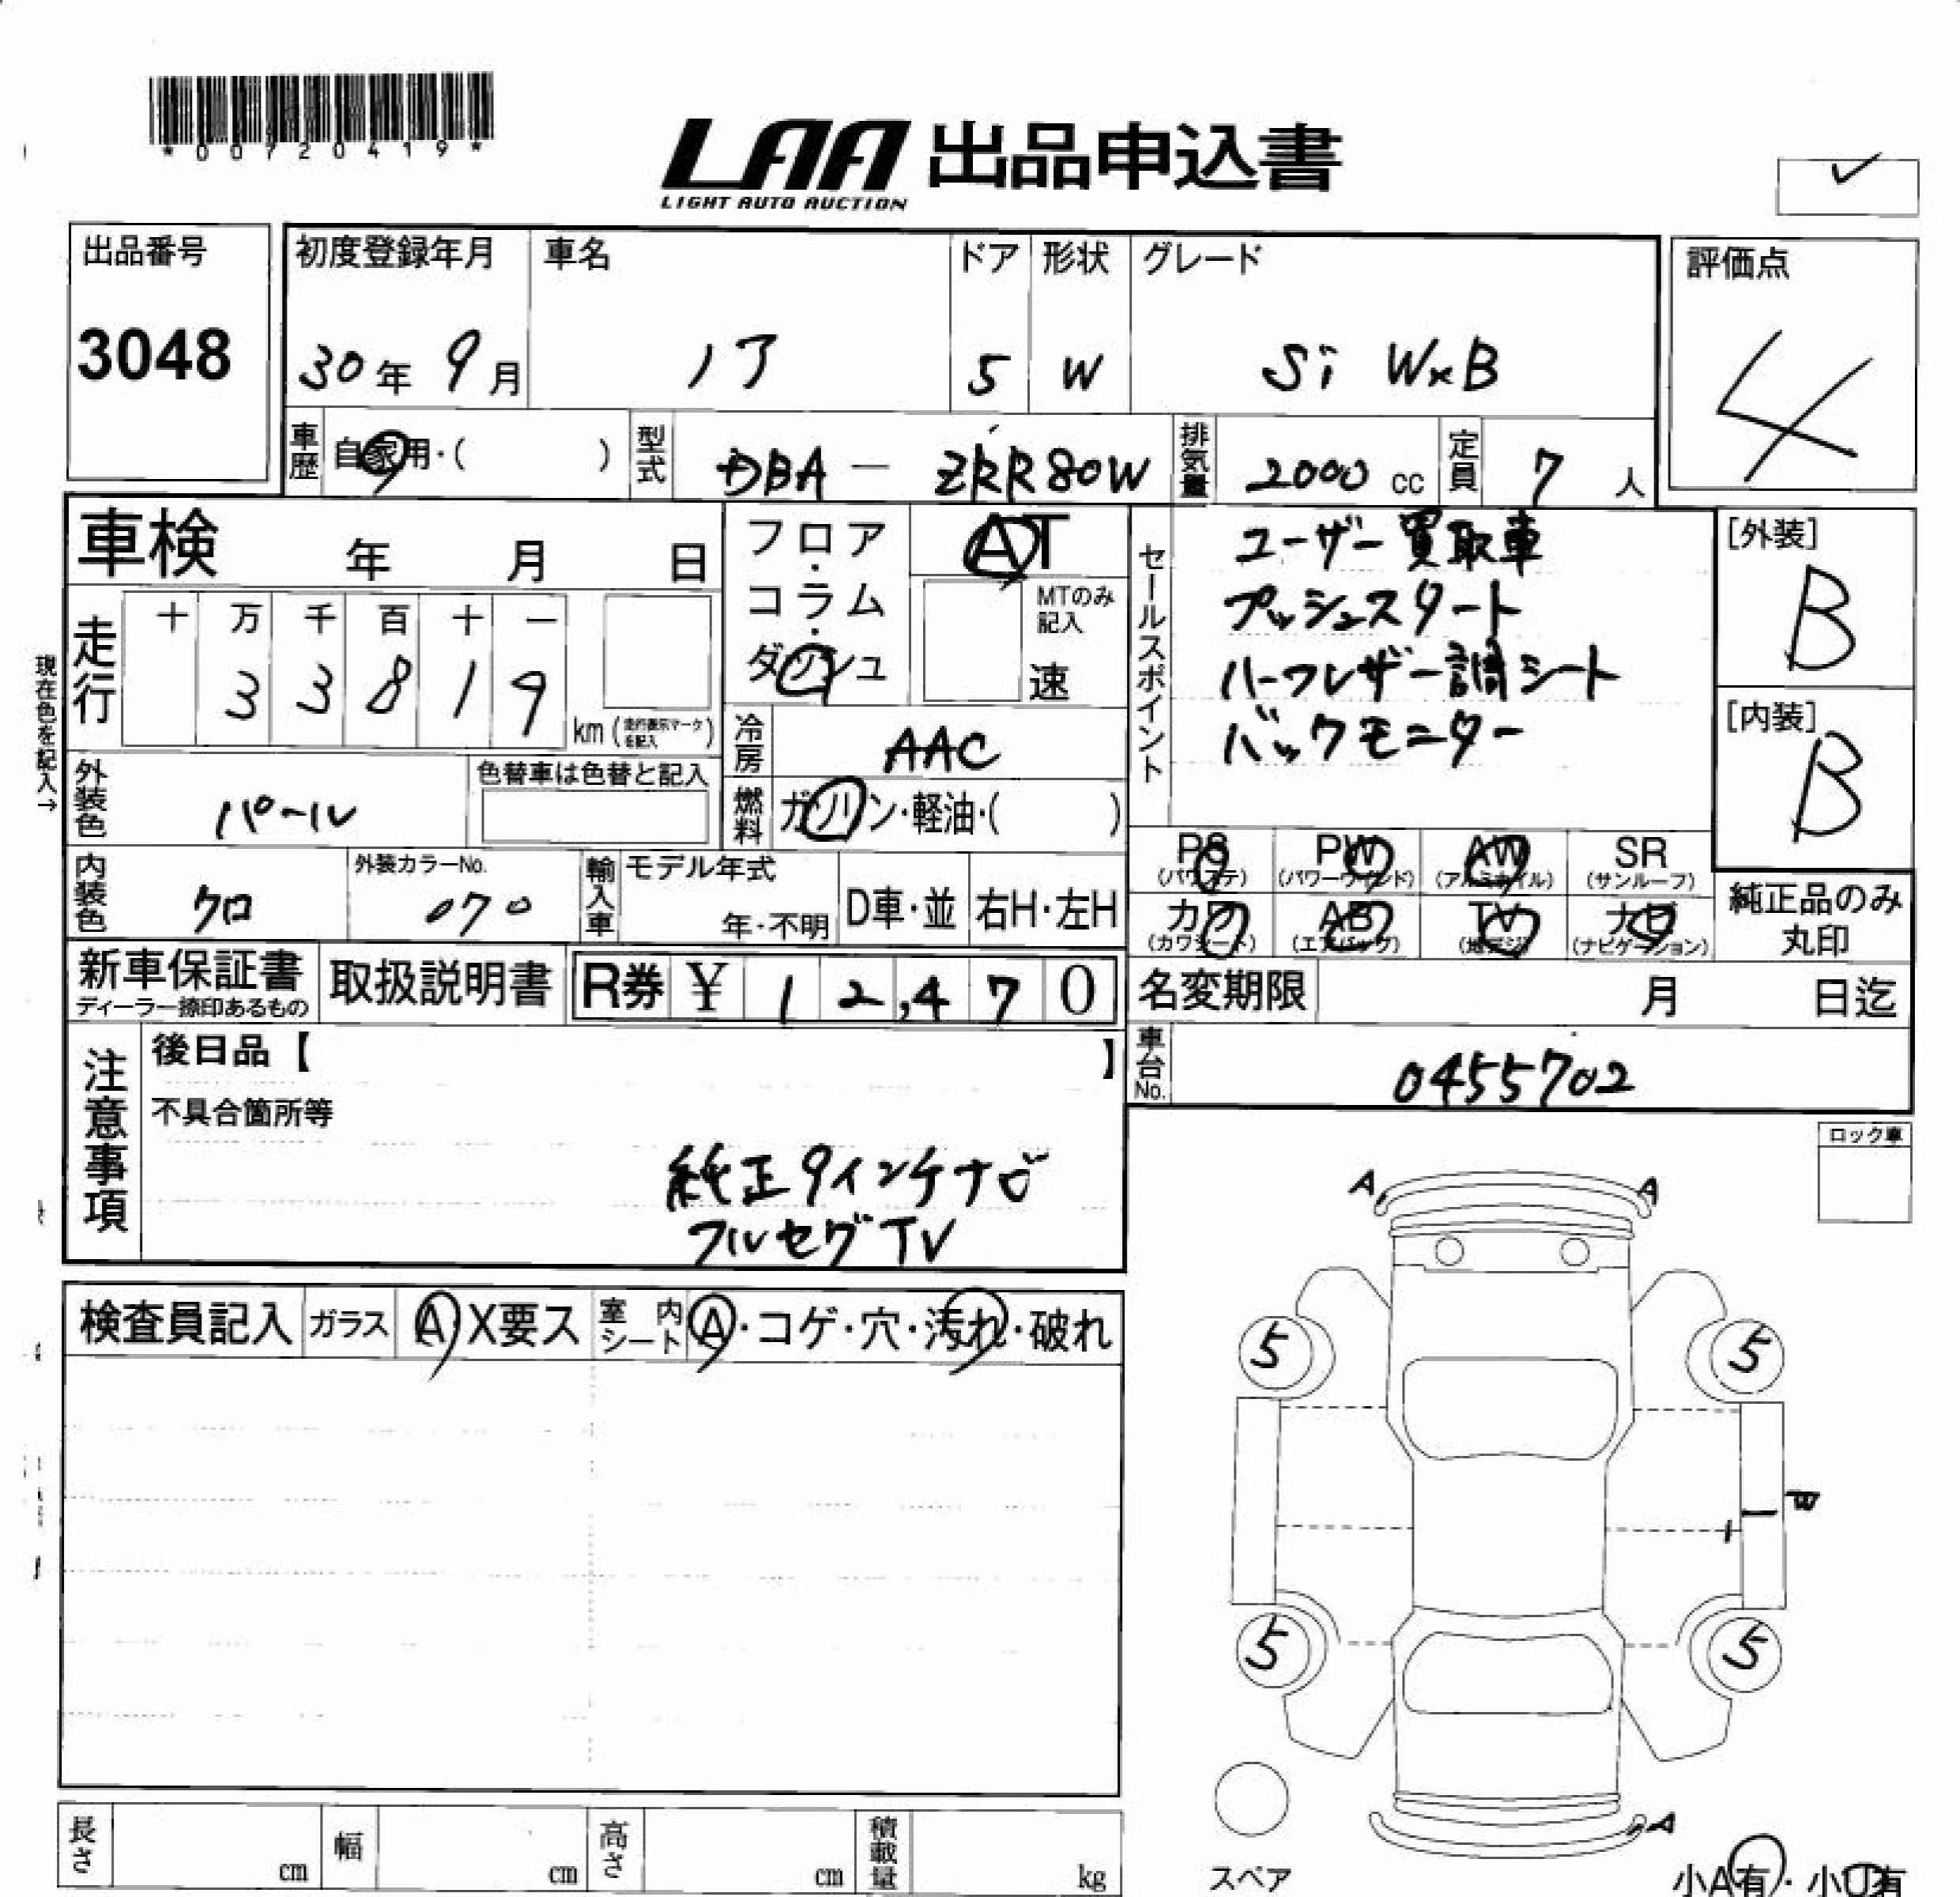 *00720419*
LAA 出品申込書
LIGHT AUTO AUCTION
✓
出品番号
3048
初度登録年月
30年 9月
車名
ノア
ドア
5
形状
W
グレード
Si W×B
評価点
4
車歴 自家用・( )
型式 DBA - ZRR80W
排気量 2000 cc
定員 7 人
車検 年 月 日
走行
十 万 千 百 十 一
3 3 8 1 9
km (走行表示マークを記入)
現在色を記入→
フロア・コラム・ダッシュ
AT
MTのみ記入
速
セールスポイント
ユーザー買取車
プッシュスタート
ハーフレザー調シート
バックモニター
[外装]
B
[内装]
B
外装色 パール
色替車は色替と記入
冷房 AAC
燃料 ガソリン・軽油・( )
内装色 クロ
外装カラーNo.
070
輸入車 モデル年式
年・不明
D車・並
右H・左H
PS (パワステ)
PW (パワーウインド)
AW (アルミホイル)
SR (サンルーフ)
カワ (カワシート)
AB (エアバッグ)
TV (地デジ)
ナビ (ナビゲーション)
純正品のみ
丸印
新車保証書
ディーラー捺印あるもの
取扱説明書
R券 ¥ 12,470
名変期限 月 日迄
車台No. 0455702
注意事項
後日品【 】
不具合箇所等
純正9インチナビ
フルセグTV
ロック車
検査員記入 ガラス A X要ス 室内シート A・コゲ・穴・汚れ・破れ
A A
5 5
W
5 5
A
スペア
小A有・小U有
長さ cm 幅 cm 高さ cm 積載量 kg